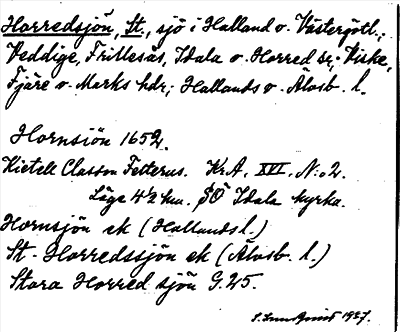 Horredsjön, St., sjö i Halland o. Västergötl.;
Veddige, Frillesås, Idala o. Horred sr; Viske,
Fjäre o. Marks hdr; Hallands o. Älvsb. l.
Hornsjön 1652.
Kietell Classon Felterus. Kr.A, XVI, N:o 2.
Läge 4 1/2 km. SÖ Idala kyrka.
Hornsjön ek (Hallands l.)
St. Horredssjön ek (Älvsb. l.)
Stora Horred sjön G.25.
1927.